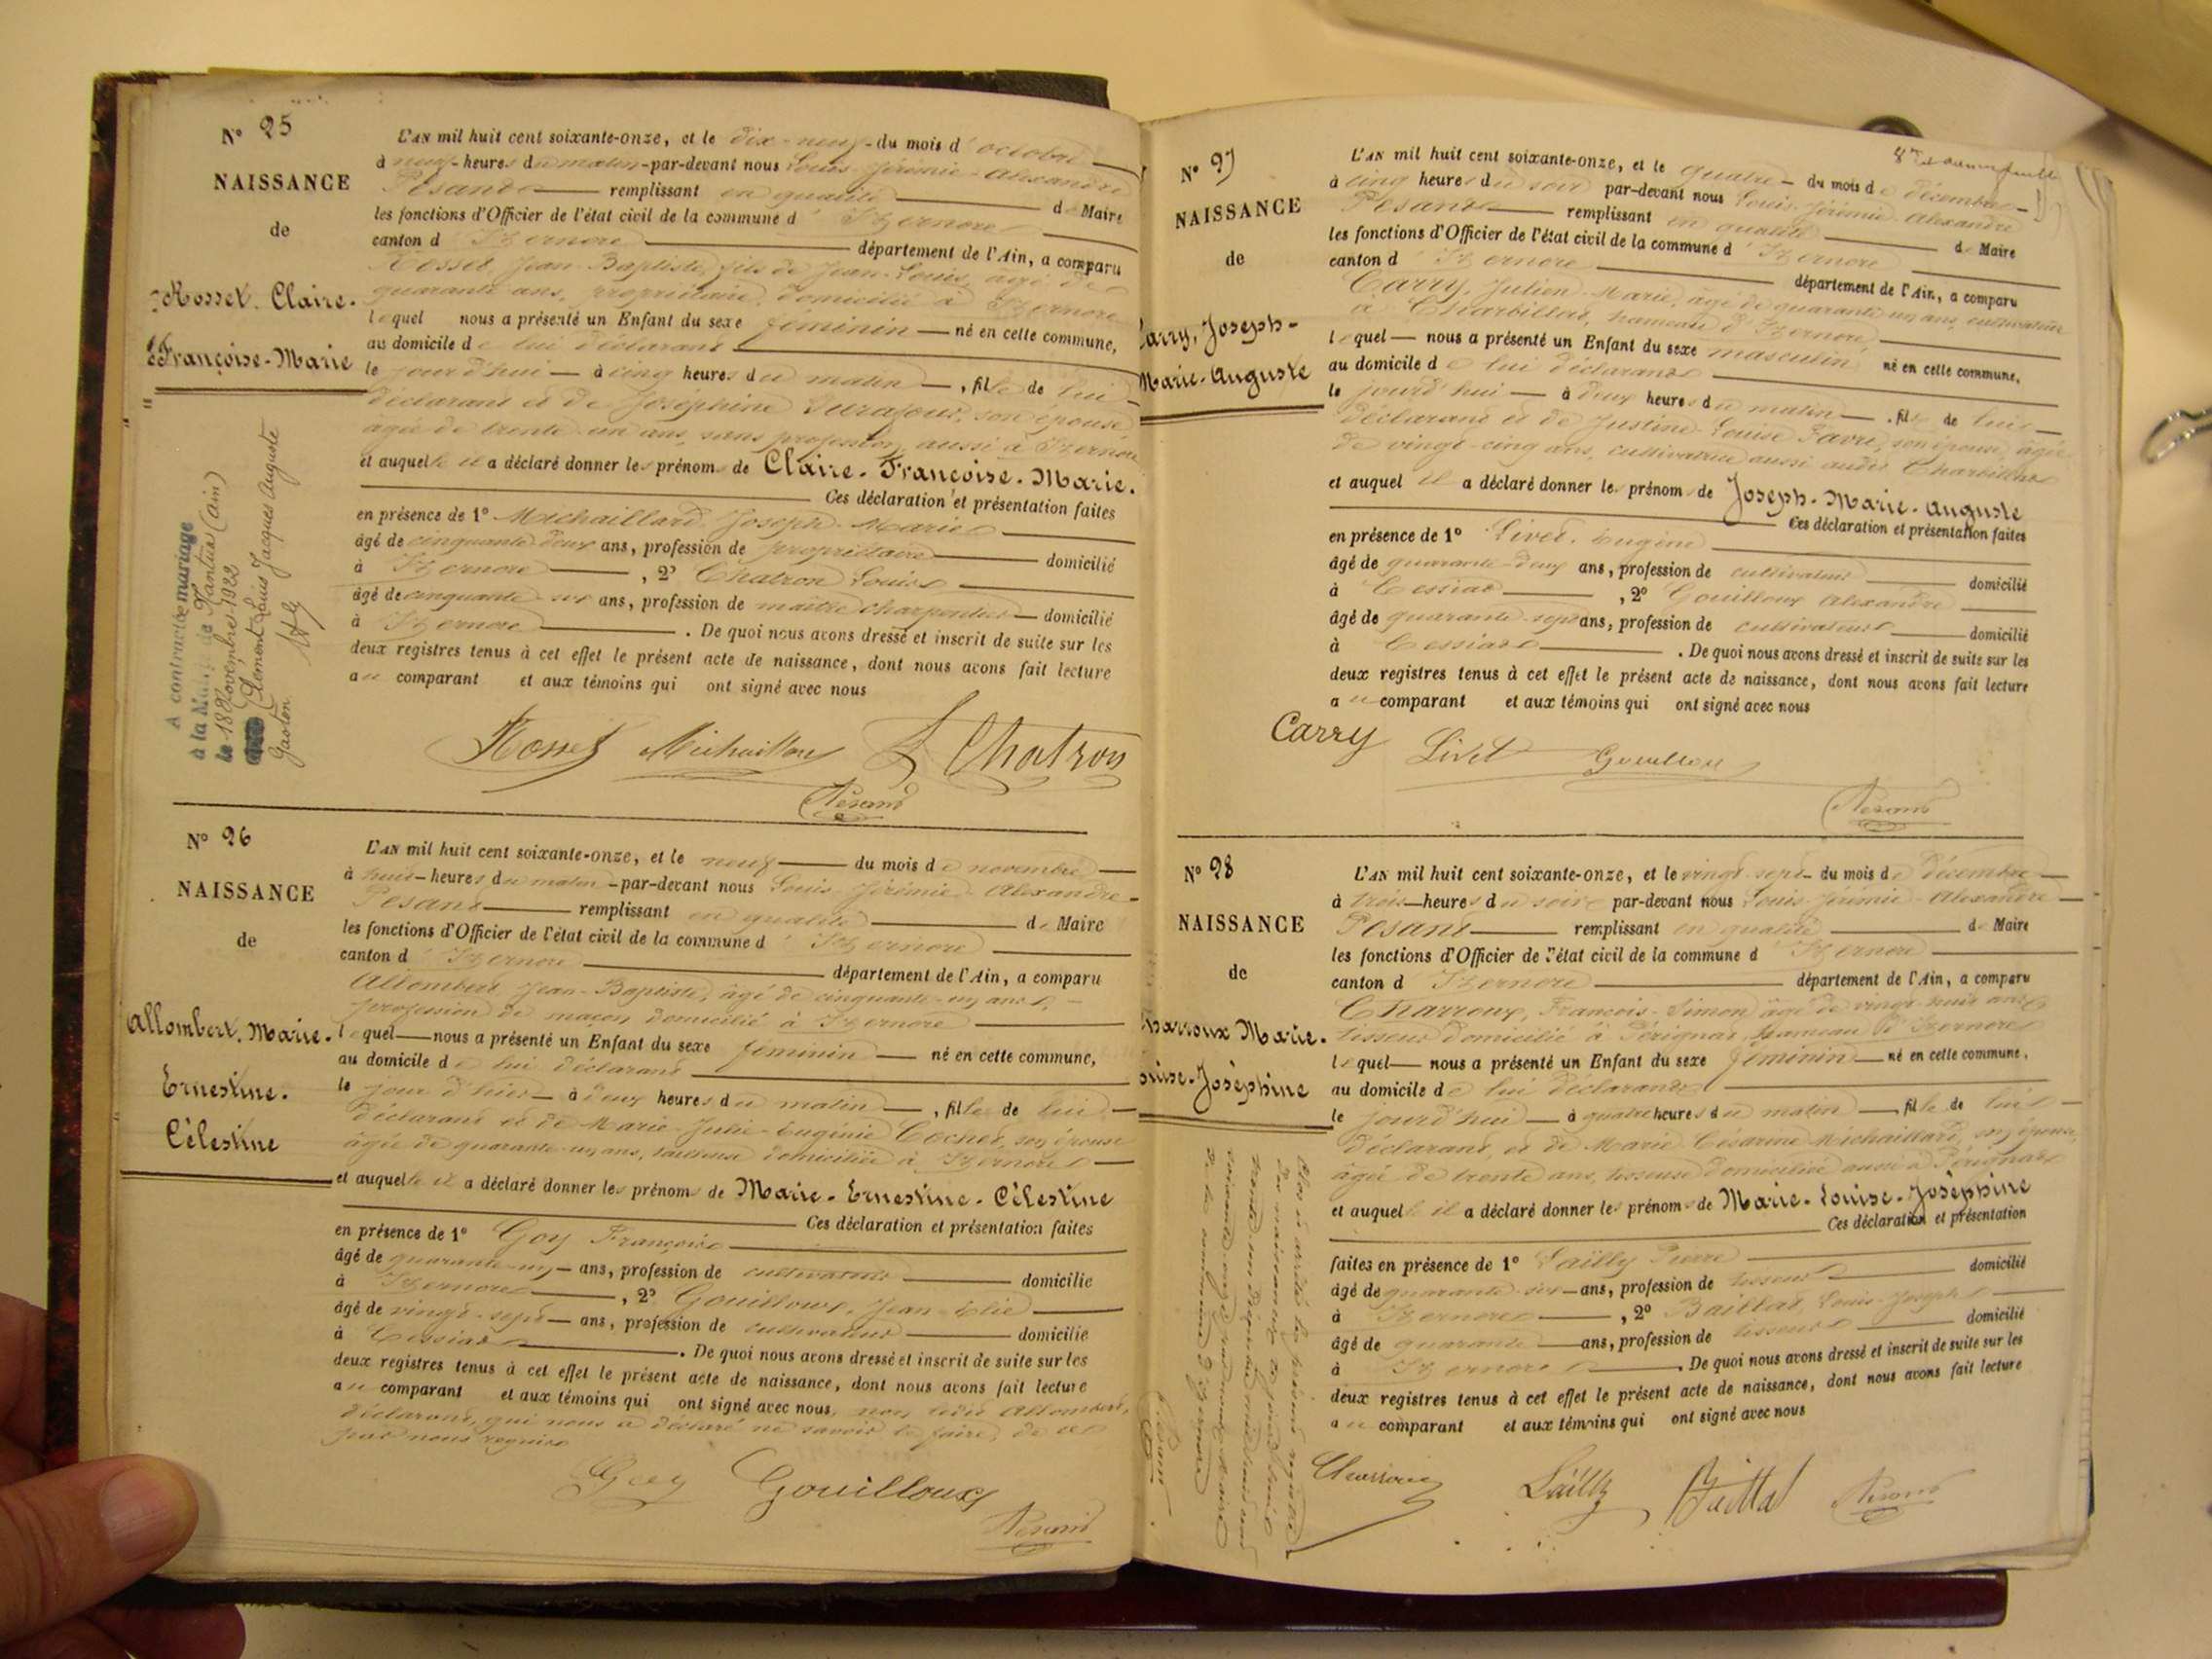 N° 25
NAISSANCE
de
Rosset. Claire.
Françoise-Marie
A contracté mariage
à la Mairie de Nantua (Ain)
le 18 Novembre 1922
Clément Louis Jacques Auguste
Gaston
L'AN mil huit cent soixante-onze, et le dix-neuf du mois d'octobre
à neuf heures du matin par-devant nous Louis-Jérémie-Alexandre
Pésand remplissant en qualité de Maire
les fonctions d'Officier de l'état civil de la commune d'Izernore
canton d'Izernore département de l'Ain, a comparu
Rosset, Jean-Baptiste, fils de Jean-Louis, âgé de
quarante ans, propriétaire, domicilié à Izernore
lequel nous a présenté un Enfant du sexe féminin né en cette commune,
au domicile de lui déclarant
le jourd'hui à cinq heures du matin, fille de lui
déclarant et de Joséphine Durafour, son épouse
âgée de trente-un ans, sans profession, aussi à Izernore
et auquelle il a déclaré donner les prénoms de Claire. Françoise. Marie.
Ces déclaration et présentation faites
en présence de 1° Michaillard Joseph-Marie
âgé de cinquante-deux ans, profession de propriétaire domicilié
à Izernore, 2° Chatron Louis
âgé de cinquante-six ans, profession de maître charpentier domicilié
à Izernore. De quoi nous avons dressé et inscrit de suite sur les
deux registres tenus à cet effet le présent acte de naissance, dont nous avons fait lecture
au comparant et aux témoins qui ont signé avec nous
Rosset Michaillard L Chatron
Pésand
N° 26
NAISSANCE
de
Allombert. Marie.
Ernestine.
Célestine
L'AN mil huit cent soixante-onze, et le neuf du mois de novembre
à huit heures du matin par-devant nous Louis-Jérémie-Alexandre
Pésand remplissant en qualité de Maire
les fonctions d'Officier de l'état civil de la commune d'Izernore
canton d'Izernore département de l'Ain, a comparu
Allombert Jean-Baptiste, âgé de cinquante-un ans,
profession de maçon domicilié à Izernore
lequel nous a présenté un Enfant du sexe féminin né en cette commune,
au domicile de lui déclarant
le jour d'hier à deux heures du matin, fille de lui
déclarant et de Marie-Julie-Eugénie Cochet, son épouse
âgée de quarante-un ans, tailleuse domiciliée à Izernore
et auquelle il a déclaré donner les prénoms de Marie. Ernestine. Célestine
Ces déclaration et présentation faites
en présence de 1° Goy François
âgé de quarante-un ans, profession de cultivateur domicilié
à Izernore, 2° Gouilloux, Jean-Elie
âgé de vingt-sept ans, profession de cultivateur domicilié
à Cessiat. De quoi nous avons dressé et inscrit de suite sur les
deux registres tenus à cet effet le présent acte de naissance, dont nous avons fait lecture
au comparant et aux témoins qui ont signé avec nous, non ledit Allombert,
déclarant, qui nous a déclaré ne savoir le faire, de ce
par nous requis
Goy Gouilloux
Pésand
8me et dernier feuillet
N° 27
NAISSANCE
de
Carry, Joseph-
Marie-Auguste
L'AN mil huit cent soixante-onze, et le quatre du mois de décembre
à cinq heures du soir par-devant nous Louis-Jérémie-Alexandre
Pésand remplissant en qualité de Maire
les fonctions d'Officier de l'état civil de la commune d'Izernore
canton d'Izernore département de l'Ain, a comparu
Carry, Julien-Marie, âgé de quarante-un ans, cultivateur
à Charbillat, hameau d'Izernore
lequel nous a présenté un Enfant du sexe masculin né en cette commune,
au domicile de lui déclarant
le jourd'hui à deux heures du matin, fils de lui
déclarant et de Justine-Louise Favre, son épouse, âgée
de vingt-cinq ans, cultivatrice aussi audit Charbillat
et auquel il a déclaré donner les prénoms de Joseph-Marie-Auguste
Ces déclaration et présentation faites
en présence de 1° Livet Eugène
âgé de quarante-deux ans, profession de cultivateur domicilié
à Cessiat, 2° Gouilloux Alexandre
âgé de quarante-sept ans, profession de cultivateur domicilié
à Cessiat. De quoi nous avons dressé et inscrit de suite sur les
deux registres tenus à cet effet le présent acte de naissance, dont nous avons fait lecture
au comparant et aux témoins qui ont signé avec nous
Carry Livet Gouilloux
Pésand
N° 28
NAISSANCE
de
Charroux Marie.
Louise-Joséphine
L'AN mil huit cent soixante-onze, et le vingt-sept du mois de décembre
à trois heures du soir par-devant nous Louis-Jérémie-Alexandre
Pésand remplissant en qualité de Maire
les fonctions d'Officier de l'état civil de la commune d'Izernore
canton d'Izernore département de l'Ain, a comparu
Charroux, François-Simon âgé de vingt-huit ans
tisseur domicilié à Pérignat, hameau d'Izernore
lequel nous a présenté un Enfant du sexe féminin né en cette commune,
au domicile de lui déclarant
le jourd'hui à quatre heures du matin, fille de lui
déclarant, et de Marie-Césarine Michaillard, son épouse,
âgée de trente ans, tisseuse domiciliée aussi à Pérignat
et auquelle il a déclaré donner les prénoms de Marie-Louise-Joséphine
Ces déclaration et présentation
faites en présence de 1° Lailly Pierre domicilié
âgé de quarante-six ans, profession de tisseur
à Izernore, 2° Baillat, Louis-Joseph
âgé de quarante ans, profession de tisseur domicilié
à Izernore. De quoi nous avons dressé et inscrit de suite sur les
deux registres tenus à cet effet le présent acte de naissance, dont nous avons fait lecture
au comparant et aux témoins qui ont signé avec nous
Charroux Lailly Baillat Pésand
Clos et arrêté le présent registre
des naissances ce jourd'hui
trente-un décembre mil huit cent
soixante-onze, par nous Maire
de la commune d'Izernore
Pésand